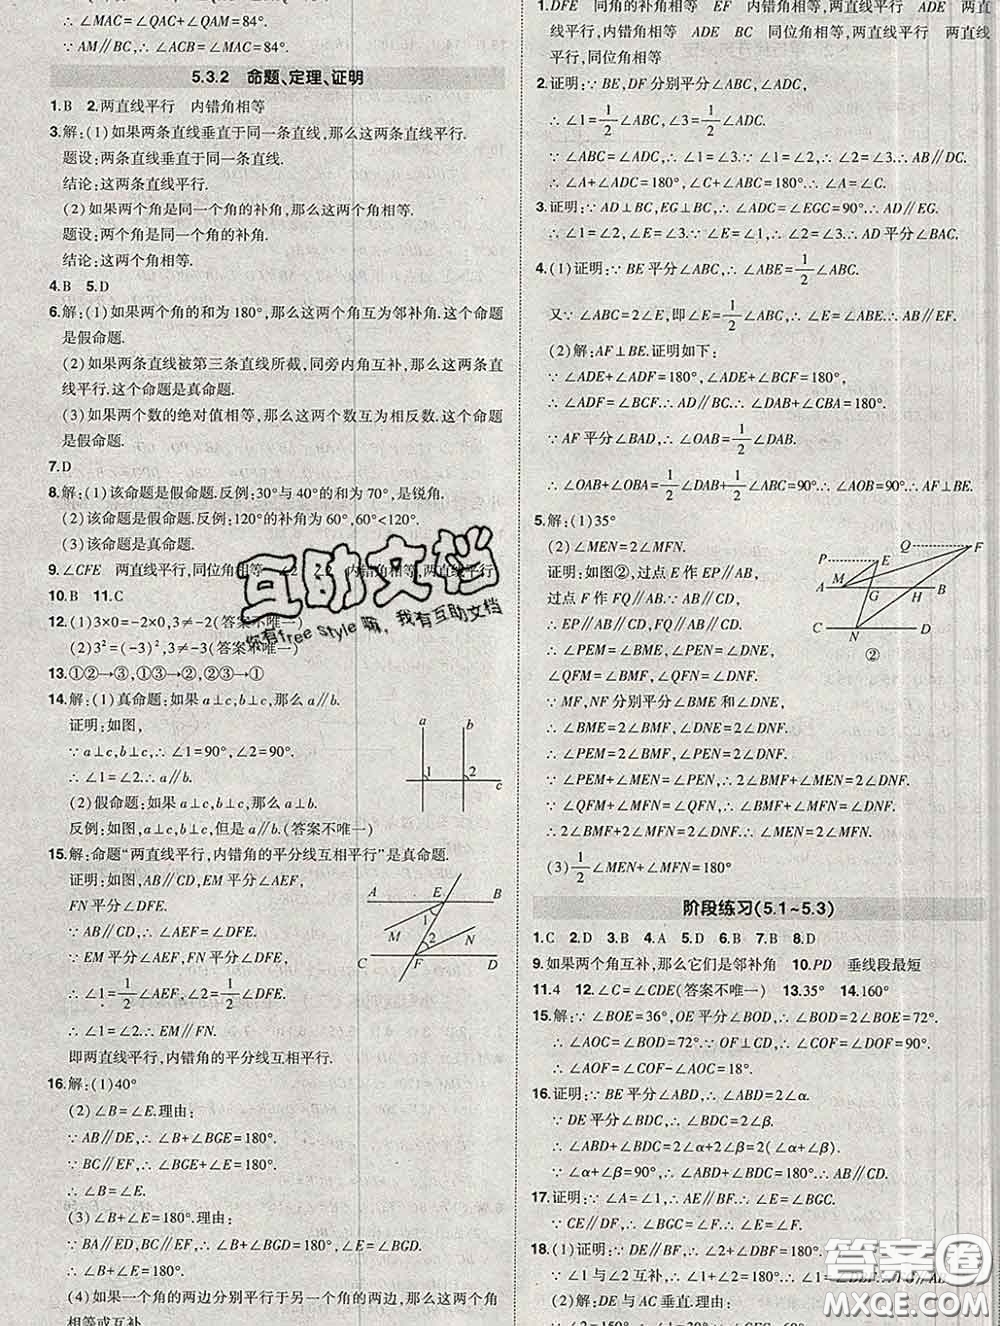 ∴ ∠MAC=∠QAC+∠QAM=84°.
∵ AM∥BC,∴ ∠ACB=∠MAC=84°.
5.3.2 命题、定理、证明
1.B 2.两直线平行 内错角相等
3.解:(1)如果两条直线垂直于同一条直线,那么这两条直线平行.
题设:两条直线垂直于同一条直线.
结论:这两条直线平行.
(2)如果两个角是同一个角的补角,那么这两个角相等.
题设:两个角是同一个角的补角.
结论:这两个角相等.
4.B 5.D
6.解:(1)如果两个角的和为180°,那么这两个角互为邻补角.这个命题
是假命题.
(2)如果两条直线被第三条直线所截,同旁内角互补,那么这两条直
线平行.这个命题是真命题.
(3)如果两个数的绝对值相等,那么这两个数互为相反数.这个命题
是假命题.
7.D
8.解:(1)该命题是假命题.反例:30°与40°的和为70°,是锐角.
(2)该命题是假命题.反例:120°的补角为60°,60°<120°.
(3)该命题是真命题.
9.∠CFE 两直线平行,同位角相等 内错角相等,两直线平行
10.B 11.C
12.(1)3×0=-2×0,3≠-2(答案不唯一)
(2)3²=(-3)²,3≠-3(答案不唯一)
13.①②→③,①③→②,②③→①
14.解:(1)真命题:如果a⊥c,b⊥c,那么a∥b.
证明:如图,
∵ a⊥c,b⊥c,∴ ∠1=90°,∠2=90°.
∴ ∠1=∠2.∴ a∥b.
(2)假命题:如果a⊥c,b⊥c,那么a⊥b.
反例:如图,a⊥c,b⊥c,但是a∥b.(答案不唯一)
a b
1 2 c
15.解:命题“两直线平行,内错角的平分线互相平行”是真命题.
证明:如图,AB∥CD,EM平分∠AEF,
FN平分∠DFE.
∵ AB∥CD,∴ ∠AEF=∠DFE.
∵ EM平分∠AEF,FN平分∠DFE,
∴ ∠1=1/2∠AEF,∠2=1/2∠DFE.
∴ ∠1=∠2.∴ EM∥FN.
即两直线平行,内错角的平分线互相平行.
A E B
1
M 2 N
C F D
16.解:(1)40°
(2)∠B=∠E.理由:
∵ AB∥DE,∴ ∠B+∠BGE=180°.
∵ BC∥EF,∴ ∠E+∠BGE=180°.
∴ ∠B=∠E.
(3)∠B+∠E=180°.理由:
∵ BA∥ED,∴ ∠B=∠BGD.∵ BC∥EF,∴ ∠E+∠BGD=
180°.∴ ∠B+∠E=180°.
(4)如果一个角的两边分别平行于另一个角的两边,那么这两个角
相等或互补.
1.DFE 同角的补角相等 EF 内错角相等,两直线平行 ADE 两直
线平行,内错角相等 ADE 两直线平行,内错角相等 两直线平行 两
直线平行,同位角相等
2.证明:∵ BE,DF分别平分∠ABC,∠ADC,
∴ ∠1=1/2∠ABC,∠3=1/2∠ADC.
∵ ∠ABC=∠ADC,∴ ∠1=∠3.∵ ∠1=∠2,∴ ∠2=∠3.∴ AB∥DC.
∴ ∠A+∠ADC=180°,∠C+∠ABC=180°.∴ ∠A=∠C.
3.证明:∵ AD⊥BC,EG⊥BC,∴ ∠ADC=∠EGC=90°.∴ AD∥EG.
∴ ∠1=∠2,∠E=∠3.∵ ∠E=∠1,∴ ∠2=∠3.∴ AD平分∠BAC.
4.(1)证明:∵ BE平分∠ABC,∴ ∠ABE=1/2∠ABC.
又∵ ∠ABC=2∠E,即∠E=1/2∠ABC,∴ ∠E=∠ABE.∴ AB∥EF.
(2)解:AF⊥BE.证明如下:
∵ ∠ADE+∠ADF=180°,∠ADE+∠BCF=180°,
∴ ∠ADF=∠BCF.∴ AD∥BC.∴ ∠DAB+∠CBA=180°.
∵ AF平分∠BAD,∴ ∠OAB=1/2∠DAB.
∴ ∠OAB+∠OBA=1/2∠DAB+1/2∠CBA=90°.∴ ∠AOB=90°.∴ AF⊥BE.
5.解:(1)35°
(2)∠MEN=2∠MFN.
证明:如图②,过点E作EP∥AB,
过点F作FQ∥AB.∵ AB∥CD,
∴ EP∥AB∥CD,FQ∥AB∥CD.
∴ ∠PEM=∠BME,∠PEN=∠DNE,
∠QFM=∠BMF,∠QFN=∠DNF.
∵ MF,NF分别平分∠BME和∠DNE,
∴ ∠BME=2∠BMF,∠DNE=2∠DNF.
∴ ∠PEM=2∠BMF,∠PEN=2∠DNF.
∵ ∠PEM+∠MEN=∠PEN,∴ 2∠BMF+∠MEN=2∠DNF.
∵ ∠QFM+∠MFN=∠QFN,∴ ∠BMF+∠MFN=∠DNF.
∴ 2∠BMF+2∠MFN=2∠DNF.∴ ∠MEN=2∠MFN.
(3)1/2∠MEN+∠MFN=180°
Q F
P E
A M G H B
C N D
②
阶段练习(5.1~5.3)
1.C 2.D 3.B 4.A 5.D 6.B 7.B 8.D
9.如果两个角互补,那么它们是邻补角 10.PD 垂线段最短
11.4 12.∠C=∠CDE(答案不唯一) 13.35° 14.160°
15.解:∵ ∠BOE=36°,OE平分∠BOD,∴ ∠BOD=2∠BOE=72°.
∴ ∠AOC=∠BOD=72°.∵ OF⊥CD,∴ ∠COF=90°.
∴ ∠AOF=∠COF-∠AOC=18°.
16.证明:∵ BE平分∠ABD,∴ ∠ABD=2∠α.
∵ DE平分∠BDC,∴ ∠BDC=2∠β.
∴ ∠ABD+∠BDC=2∠α+2∠β=2(∠α+∠β).
∵ ∠α+∠β=90°,∴ ∠ABD+∠BDC=180°.∴ AB∥CD.
17.证明:∵ ∠A=∠1,∴ AE∥BF.∴ ∠E=∠BGC.
∵ CE∥DF,∴ ∠F=∠BGC.∴ ∠E=∠F.
18.(1)证明:∵ DE∥BF,∴ ∠2+∠DBF=180°.
∵ ∠1与∠2互补,∴ ∠1+∠2=180°.
(2)解:DE与AC垂直.理由:
互助文档
你有free style嘛, 我有互助文档
答案圈
MXQE.COM